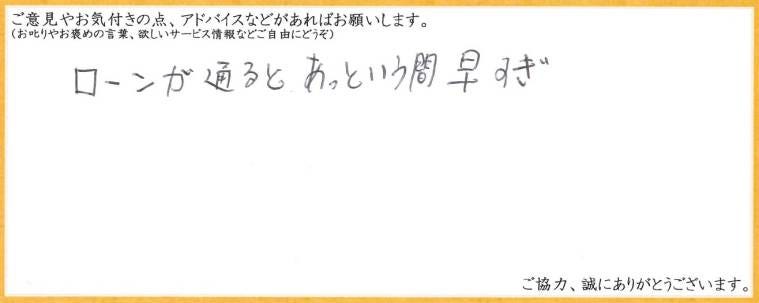 ご意見やお気付きの点、アドバイスなどがあればお願いします。
(お叱りやお褒めの言葉、欲しいサービス情報などご自由にどうぞ)
ローンが通ると あっという間 早すぎ
ご協力、誠にありがとうございます。